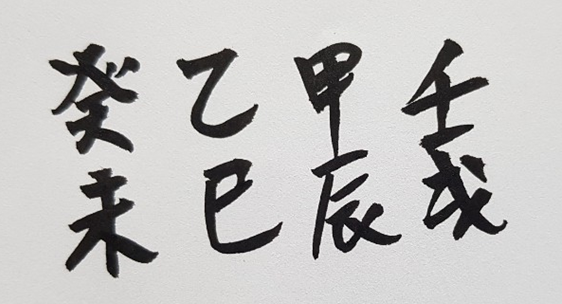 壬戌
甲辰
乙巳
癸未